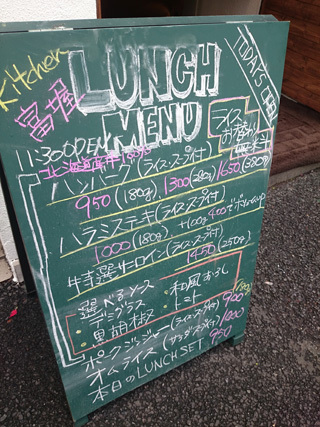 Kitchen
富士屋
LUNCH
MENU
TODAYS
11:30 OPEN
ライス
お替り
ハンバーグ(ライス・スープ付)
950(180g) 1300(280g) 1650(380g)
ハラミステーキ(ライス・スープ付)
1000(180g) +100g 400
特選サーロイン(ライス・スープ付)
1450(250g)
選べるソース
・デミグラス ・和風おろし
・黒胡椒 ・トマト
ポークジンジャー(ライス・スープ付) 900
オムライス(サラダ・スープ付) 1000
本日のLUNCH SET 950